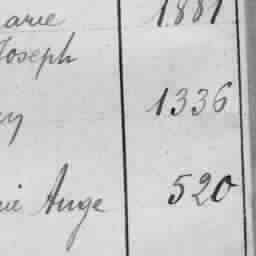 arie 1881
Joseph
1336
rie Ange 520